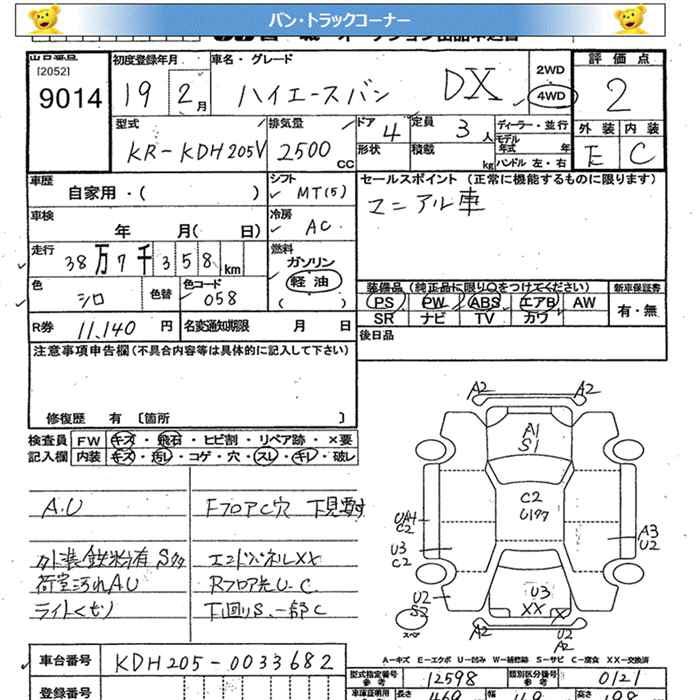 バン・トラックコーナー
出品番号
[2052]
9014
初度登録年月
19 2月
車名・グレード
ハイエースバン DX
2WD
4WD
評価点
2
外装 内装
E C
型式
KR-KDH205V
排気量
2500 CC
ドア
4
形状
定員
3人
積載
kg
ディーラー・並行
モデル年式 年
ハンドル 左・右
車歴
自家用・( )
シフト
MT(5)
車検
年 月( 日)
冷房
AC
走行
38万7千358km
燃料
ガソリン
軽油
( )
色
シロ
色替
色コード
058
R券
11,140円
名変通知期限 月 日
セールスポイント(正常に機能するものに限ります)
マニアル車
装備品(純正品に限り○をつけてください)
PS PW ABS エアB AW
SR ナビ TV カワ
新車保証書
有・無
後日品
注意事項申告欄(不具合内容等は具体的に記入して下さい)
修復歴 有 [箇所 ]
検査員
記入欄
FW キズ・飛石・ヒビ割・リペア跡・×要
内装 キズ・汚レ・コゲ・穴・スレ・キレ・破レ
A.U
外装鉄粉有 Sタ
荷室汚れAU
ライトくもり
FフロアC穴 下見要す
エンドパネルXX
Rフロア先U.C
下回りS.一部C
A2 A2
A1
S1
C2
U177
UA4
C2
U3
C2
A3
U2
U2
S2
U3
XX
U2
A2
A2
スペア
A-キズ E-エクボ U-凹み W-補修跡 S-サビ C-腐食 XX-交換済
車台番号
KDH205-0033682
登録番号
型式指定番号
参考
12598
類別区分番号
参考
0121
車庫証明用
長さ
469
幅
高さ
198